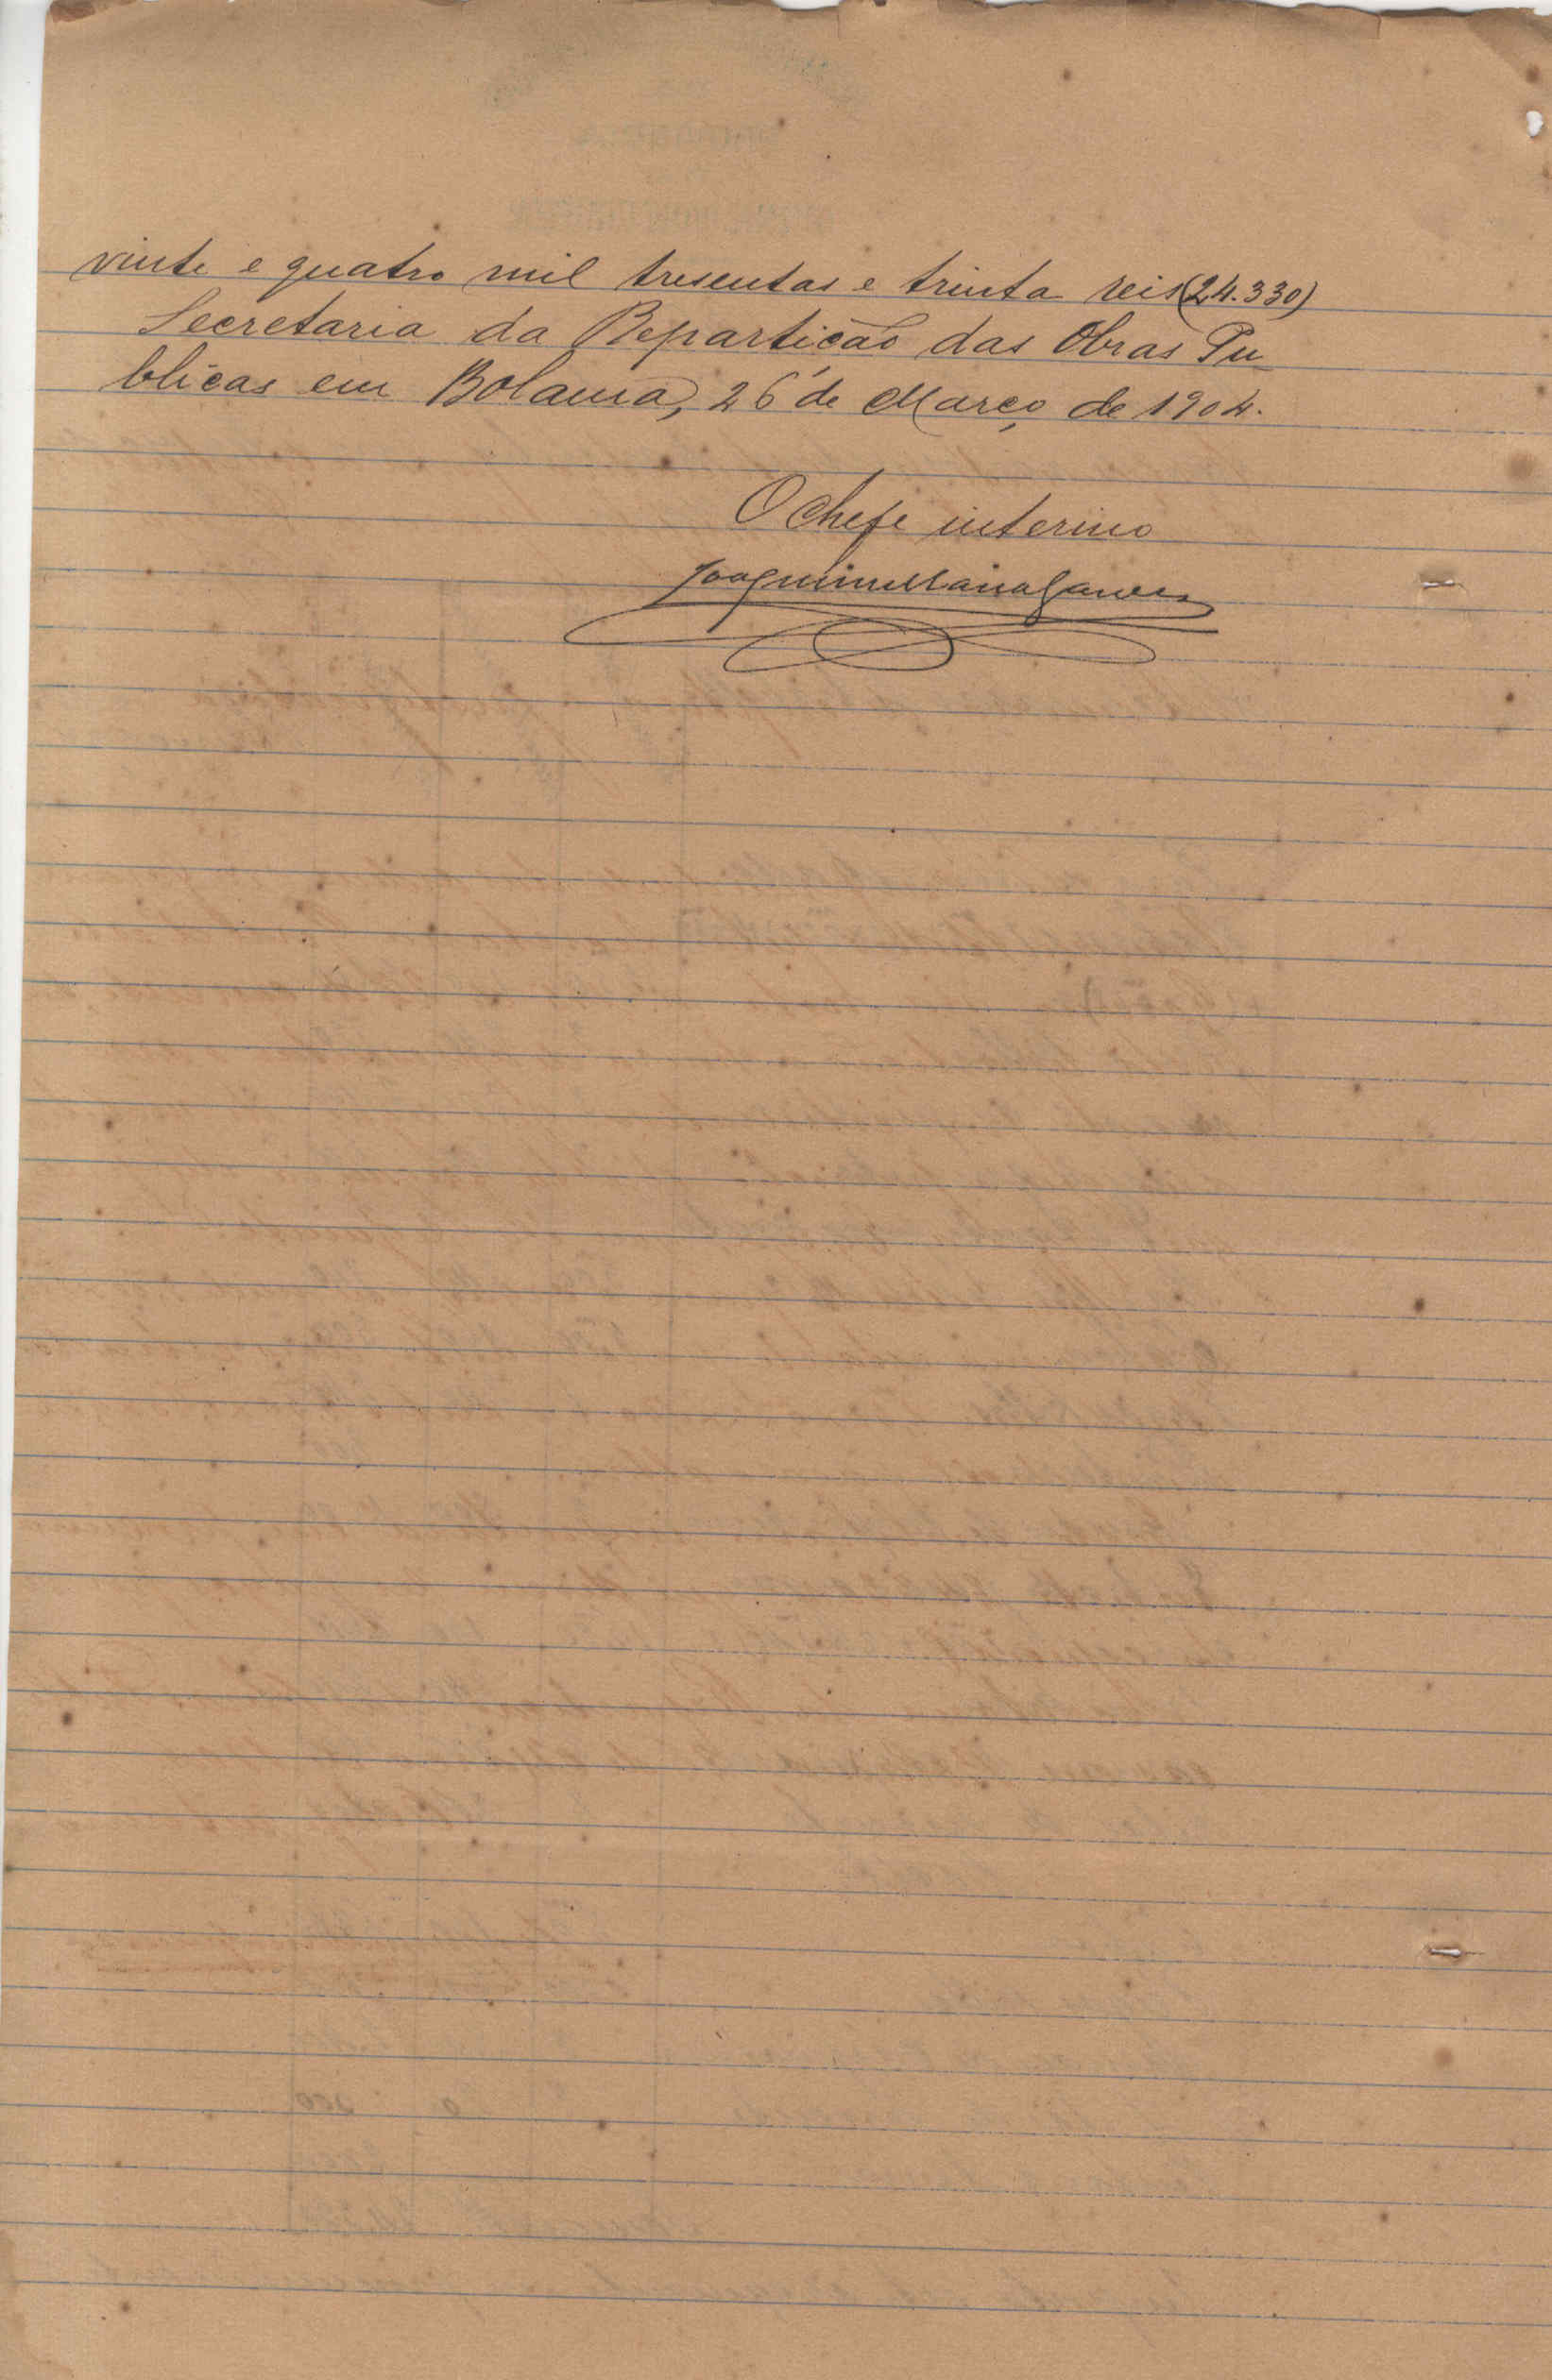 vinte e quatro mil tresentas e trinta reis (24.330)
Secretaria da Repartição das Obras Pu-
blicas em Bolama, 26 de Março de 1904.
O chefe interino
Joaquim Maria